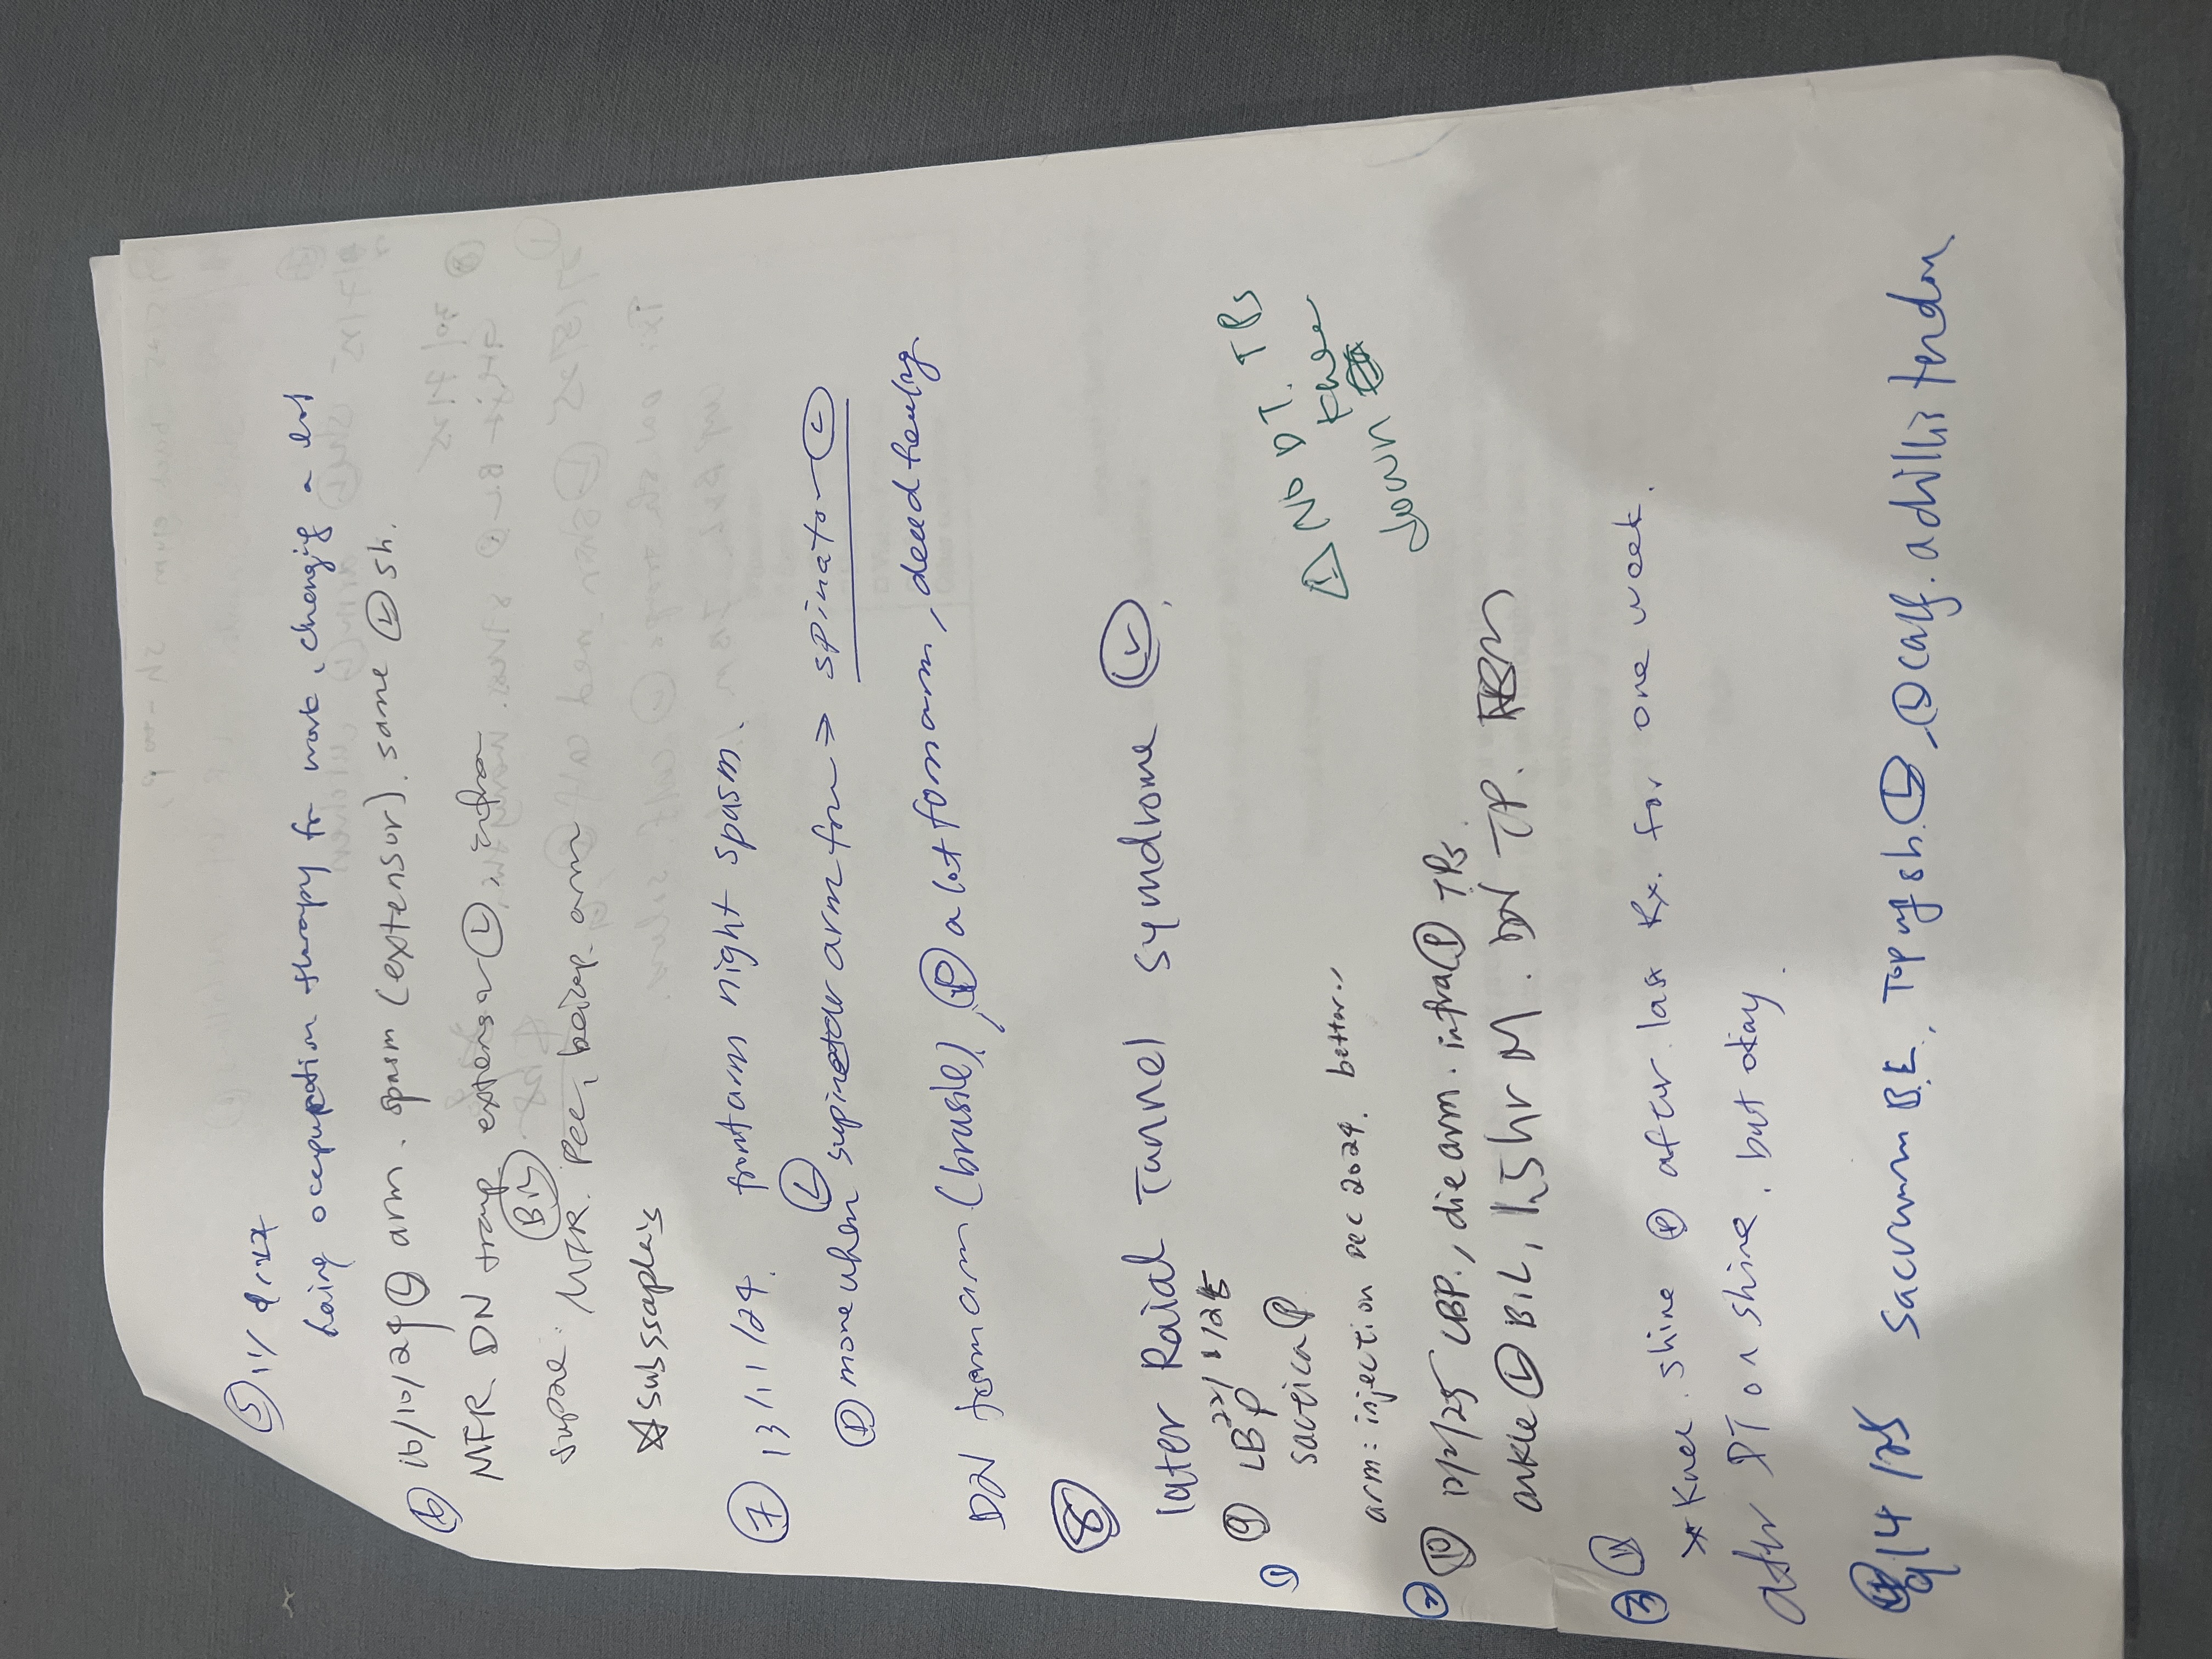 ⑤ 11/9/24
having occupation therapy for work, changing a lot
⑥ 16/10/24 Ⓛ arm. spasm (extensor). same Ⓛ sh.
MFR. DN trap extensor Ⓛ, infra
supra. Bil
MFR. Pec, beicep arm
☆ subsscaplais
⑦ 13/11/24. forarm night spasm.
Ⓟ more when Ⓛ supinator arm for → spinator Ⓛ
DN forarm (brusle), Ⓟ a lot forarm, deed healing
⑧
later Raial Tunnel syndrome Ⓛ,
① ⑨ LBP 22/1/25
sacticaⓅ
⚠ No DT. TPs
Knee
down
arm: injection Dec 2024. better..
② ⑩ 12/2/25 LBP., die arm. infra Ⓟ TPs
ankle Ⓛ BIL, 1.5hr M. DN TP.
③ ⑪
* Knee. shine Ⓟ after last Rx. for one week.
after PT on shine. but okay.
9/4/25 Sacurum B.L., Top of sh. Ⓛ, Ⓛ calf. achillis tendon